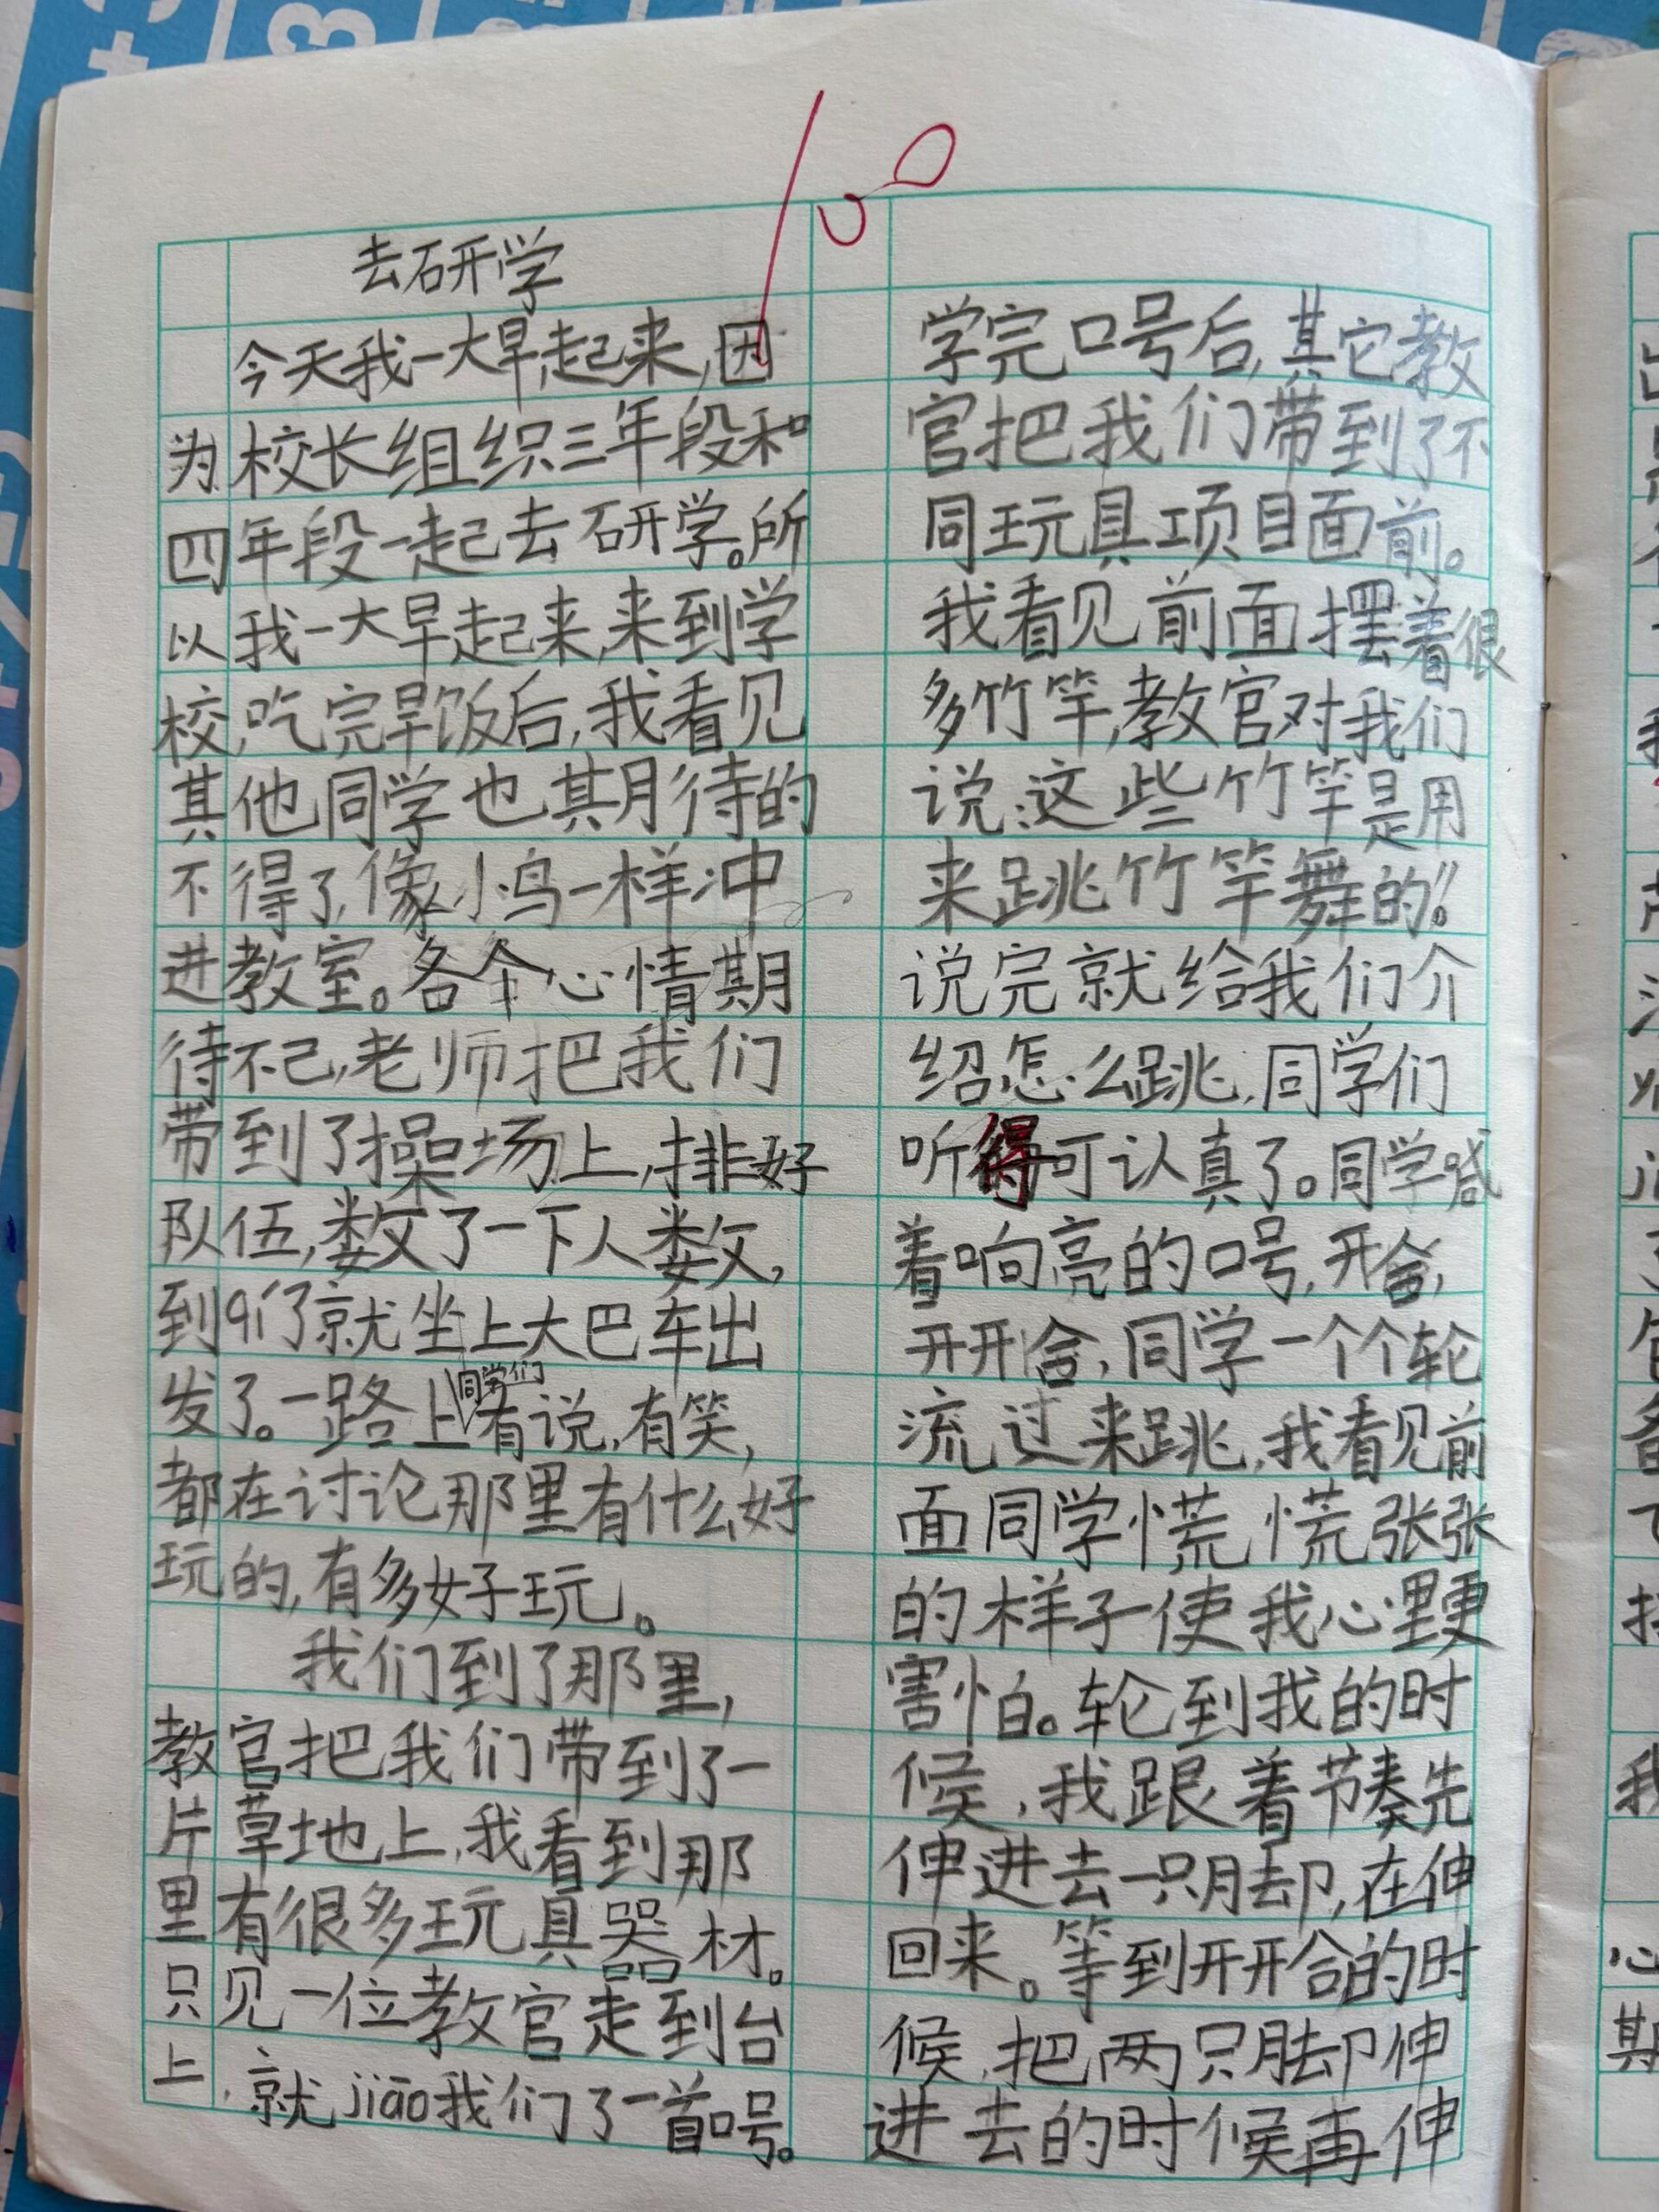 100
去研学
今天我一大早起来,因
为校长组织三年段和
四年段一起去研学。所
以我一大早起来,来到学
校,吃完早饭后,我看见
其他同学也期待的
不得了,像小鸟一样冲
进教室。各个心情期
待不己,老师把我们
带到了操场上,排好
队伍,数了一下人数,
到9了就坐上大巴车出
发了。一路上同学们有说,有笑,
都在讨论那里有什么好
玩的,有多好玩。
我们到了那里,
教官把我们带到了一
片草地上,我看到那
里有很多玩具器材。
只见一位教官走到台
上,就jiāo我们了一首口号。
学完口号后,其它教
官把我们带到了不
同玩具项目面前。
我看见前面摆着很
多竹竿,教官对我们
说:这些竹竿是用
来跳竹竿舞的。”
说完就给我们介
绍怎么跳,同学们
听得可认真了。同学喊
着响亮的口号,开合,
开开合,同学一个个轮
流过来跳,我看见前
面同学慌慌张张
的样子使我心里更
害怕。轮到我的时
候,我跟着节奏先
伸进去一只脚,在伸
回来。等到开开合的时
候,把两只脚伸
进去的时候再伸